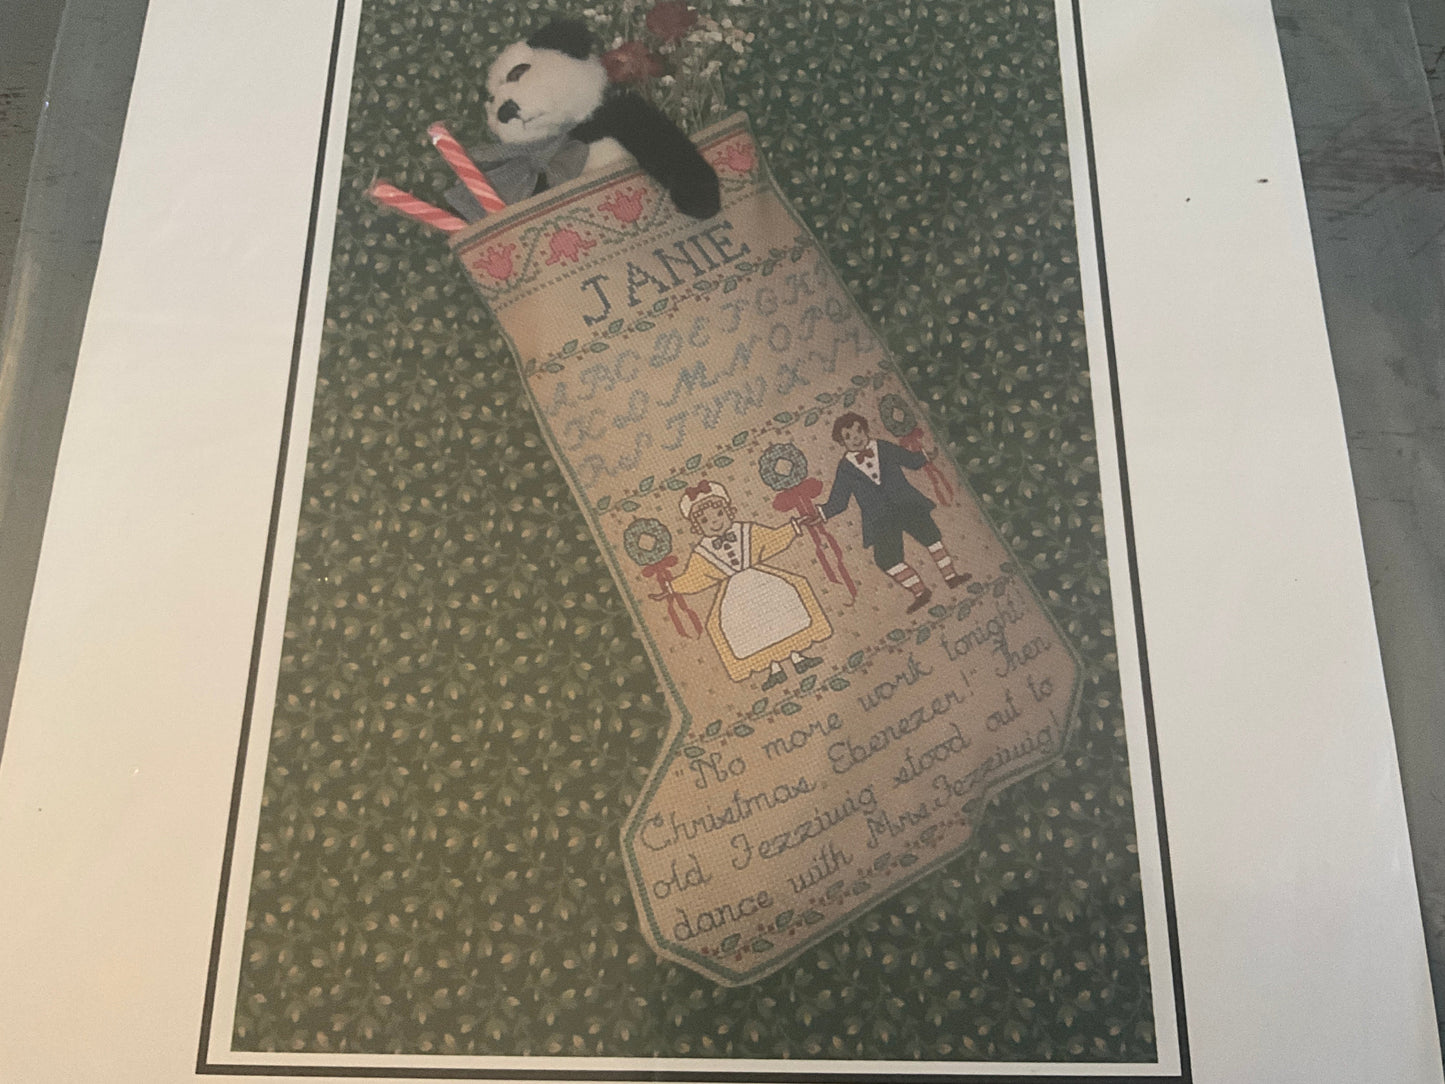 JANIE
A B C D E F G H I
K L M N O P Q
R S T U W X Y Z
"No more work tonight!
Christmas, Ebenezer!" Then
old Fezziwig stood out to
dance with Mrs. Fezziwig!